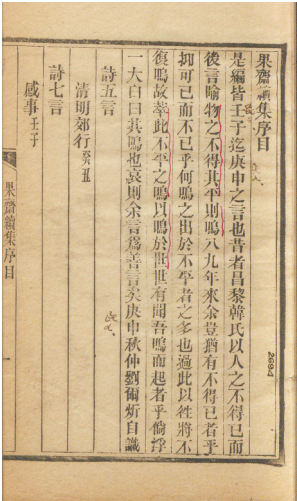 果齋續集序目
是編皆壬子迄庚申之言也昔者昌黎韓氏以人之不得已而
後言喻物之不得其平則鳴八九年來余豈猶有不得已者乎
抑可已而不已乎何鳴之出於不平者之多也過此以往將不
復鳴故萃此不平之鳴以鳴於世世有聞吾鳴而起者乎倘浮
一大白曰其鳴也哀則余言爲善言矣庚申秋仲劉爾炘自識
詩五言
清明郊行癸丑
詩七言
感事壬子
果齋續集序目
一
26944